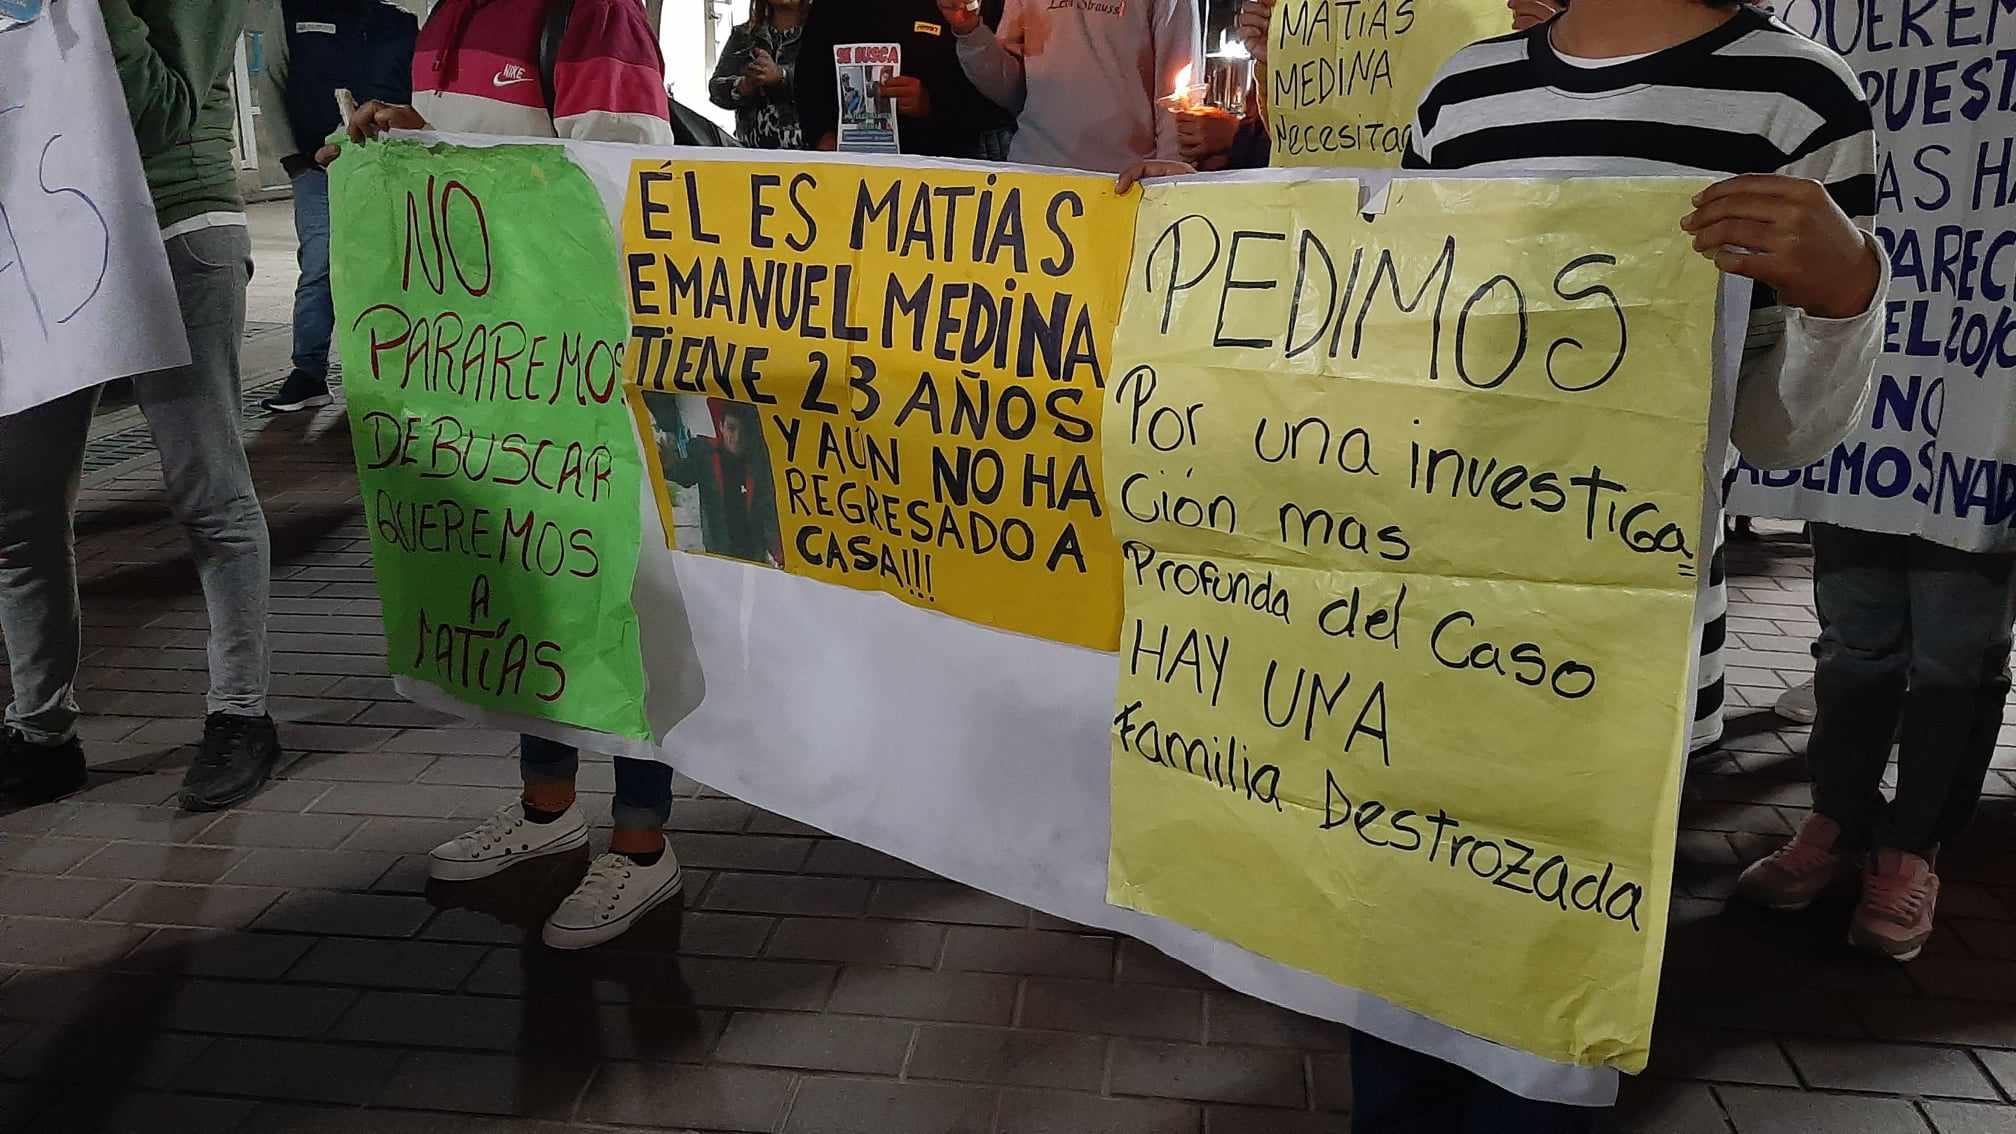 NO
PARAREMOS
DE BUSCAR
QUEREMOS
A
MATÍAS
ÉL ES MATÍAS
EMANUEL MEDINA
TIENE 23 AÑOS
Y AÚN NO HA
REGRESADO A
CASA!!!
PEDIMOS
Por una investiga=
ción mas
Profunda del Caso
HAY UNA
Familia Destrozada
MATÍAS
MEDINA
Necesita
SE BUSCA
NIKE
Levi Strauss
QUEREM
PUEST
AS H
PAREC
EL 20/0
NO
ABEMOS NAD
AS